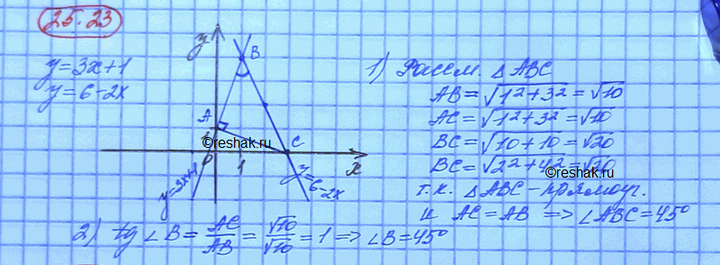 25.23
y=3x+1
y=6-2x
y
B
A
1
0
1
C
x
y=3x+1
y=6-2x
©reshak.ru
1) Рассм. △ABC
AB=√1²+3² =√10
AC=√1²+3² =√10
BC=√10+10 =√20
BC=√2²+4² =√20
©reshak.ru
т.к. △ABC-прямоуг.
и AC=AB ⟹ ∠ABC=45°
2) tg ∠B = AC/AB = √10/√10 = 1 ⟹ ∠B=45°